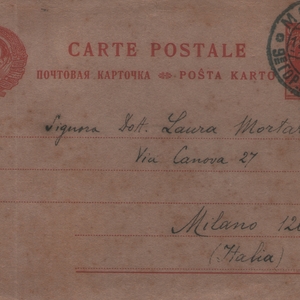 CARTE POSTALE
ПОЧТОВАЯ КАРТОЧКА POŜTA KARTO
Signora Dott. Laura Mortar
Via Canova 27
Milano 12
(Italia)